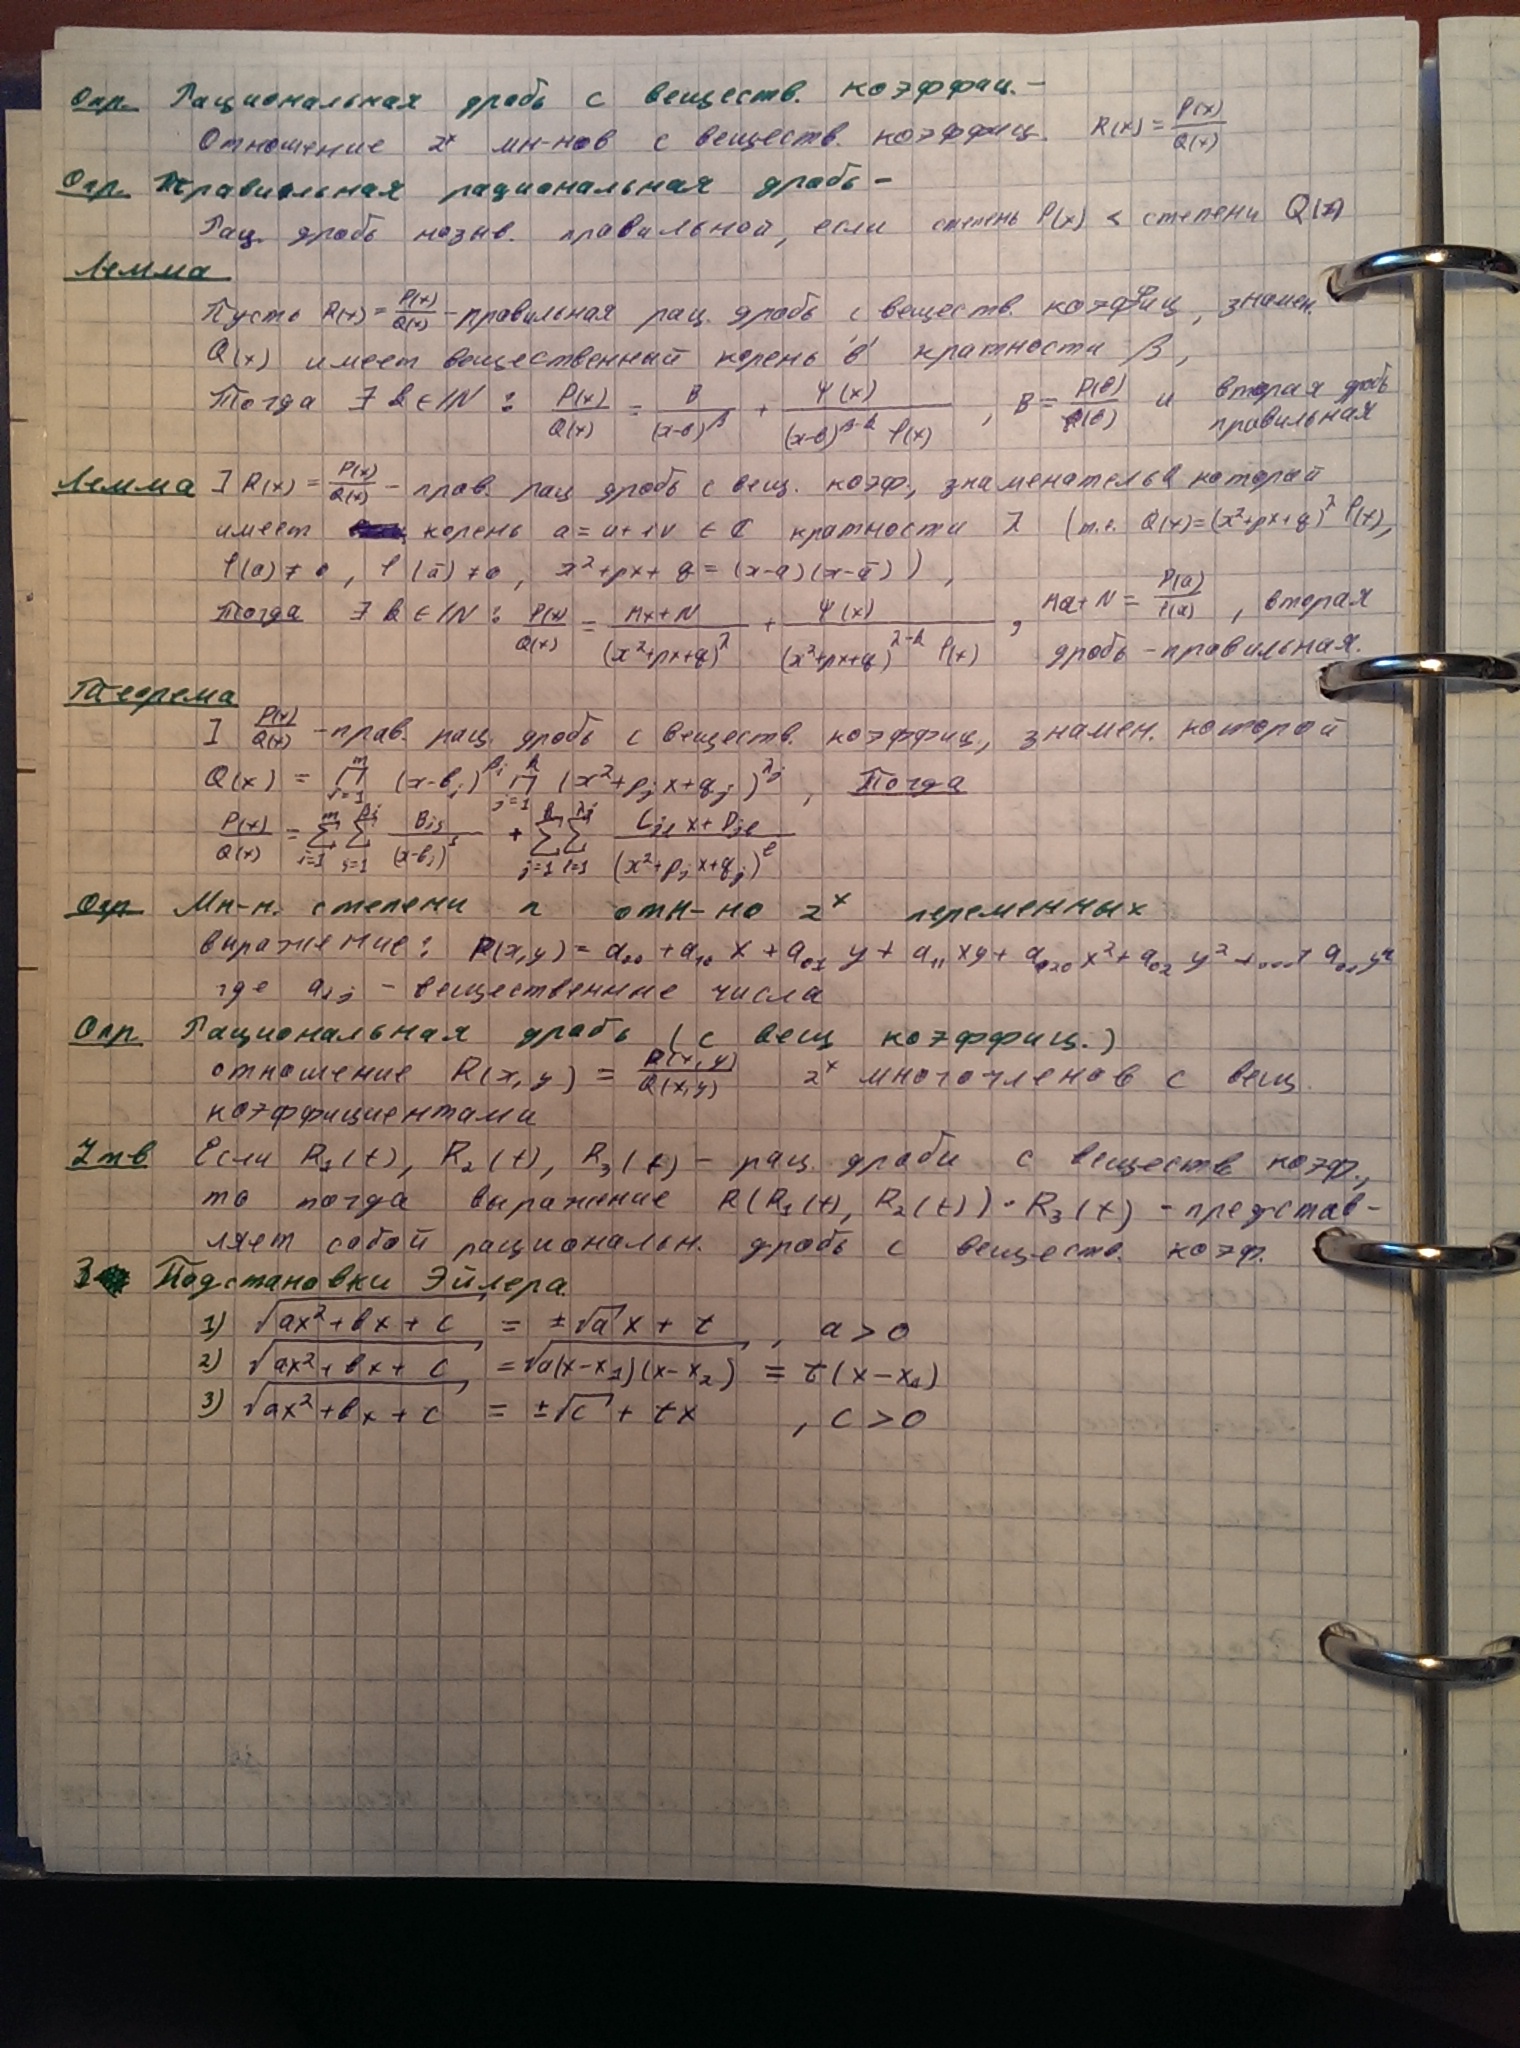 Опр. Рациональная дробь с веществ. коэффиц. –
Отношение 2х мн-нов с веществ. коэффиц. R(x) = P(x)/Q(x)
Опр. Правильная рациональная дробь –
Рац. дробь назыв. правильной, если степень P(x) < степени Q(x)
Лемма
Пусть R(x) = P(x)/Q(x) – правильная рац. дробь с веществ. коэффиц, знамен.
Q(x) имеет вещественный корень 'в' кратности β,
Тогда ∃ k ∈ ℕ : P(x)/Q(x) = B/(x-в)^β + Ψ(x)/((x-в)^(β-k) φ(x)), B = P(в)/φ(в) и вторая дробь правильная
Лемма ] R(x) = P(x)/Q(x) – прав. рац. дробь с вещ. коэф., знаменатель которой
имеет корень a = u + iv ∈ ℂ кратности λ (т.е. Q(x) = (x²+px+q)^λ φ(x),
φ(a) ≠ 0, φ(ā) ≠ 0, x²+px+q = (x-a)(x-ā)),
Тогда ∃ k ∈ ℕ : P(x)/Q(x) = (Mx+N)/(x²+px+q)^λ + Ψ(x)/((x²+px+q)^(λ-k) φ(x)), Ma+N = P(a)/φ(a), вторая дробь – правильная.
Теорема
] P(x)/Q(x) – прав. рац. дробь с веществ. коэффиц., знамен. которой
Q(x) = ∏_{i=1}^{m} (x-в_i)^{β_i} ∏_{j=1}^{k} (x²+p_j x+q_j)^{λ_j}, Тогда
P(x)/Q(x) = ∑_{i=1}^{m} ∑_{s=1}^{β_i} B_{is}/(x-в_i)^s + ∑_{j=1}^{k} ∑_{l=1}^{λ_j} (C_{jl} x + D_{jl})/(x²+p_j x+q_j)^l
Опр Мн-н. степени n отн-но 2х переменных
выражение: P(x,y) = a₀₀ + a₁₀ x + a₀₁ y + a₁₁ xy + a₂₀ x² + a₀₂ y² + ... + a₀ₙ yⁿ
где a_{ij} – вещественные числа
Опр Рациональная дробь (с вещ коэффиц.)
отношение R(x,y) = P(x,y)/Q(x,y) 2х многочленов с вещ.
коэффициентами
Утв Если R₁(t), R₂(t), R₃(t) – рац. дроби с веществ. коэф.,
то тогда выражение R(R₁(t), R₂(t)) · R₃(t) – представ-
ляет собой рациональн. дробь с веществ. коэф.
3 Подстановки Эйлера
1) √(ax²+вx+c) = ±√a x + t, a > 0
2) √(ax²+вx+c) = √(a(x-x₁)(x-x₂)) = t(x-x₁)
3) √(ax²+вx+c) = ±√c + tx, c > 0